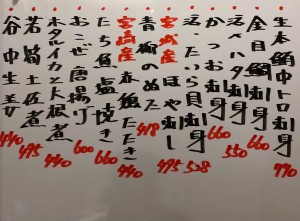 生本鮪中トロ刺身 770
金目鯛刺身 660
ハタ刺身 550
刺身 660
いたら貝刺身 528
宮城産 ほや刺し 495
青柳のぬた 418
宮崎産 赤鶏たたき 440
たちうお塩焼き 660
おこぜ唐揚げ 600
ホタルイカと大根煮 440
若筍土佐煮 495
谷中生姜 440